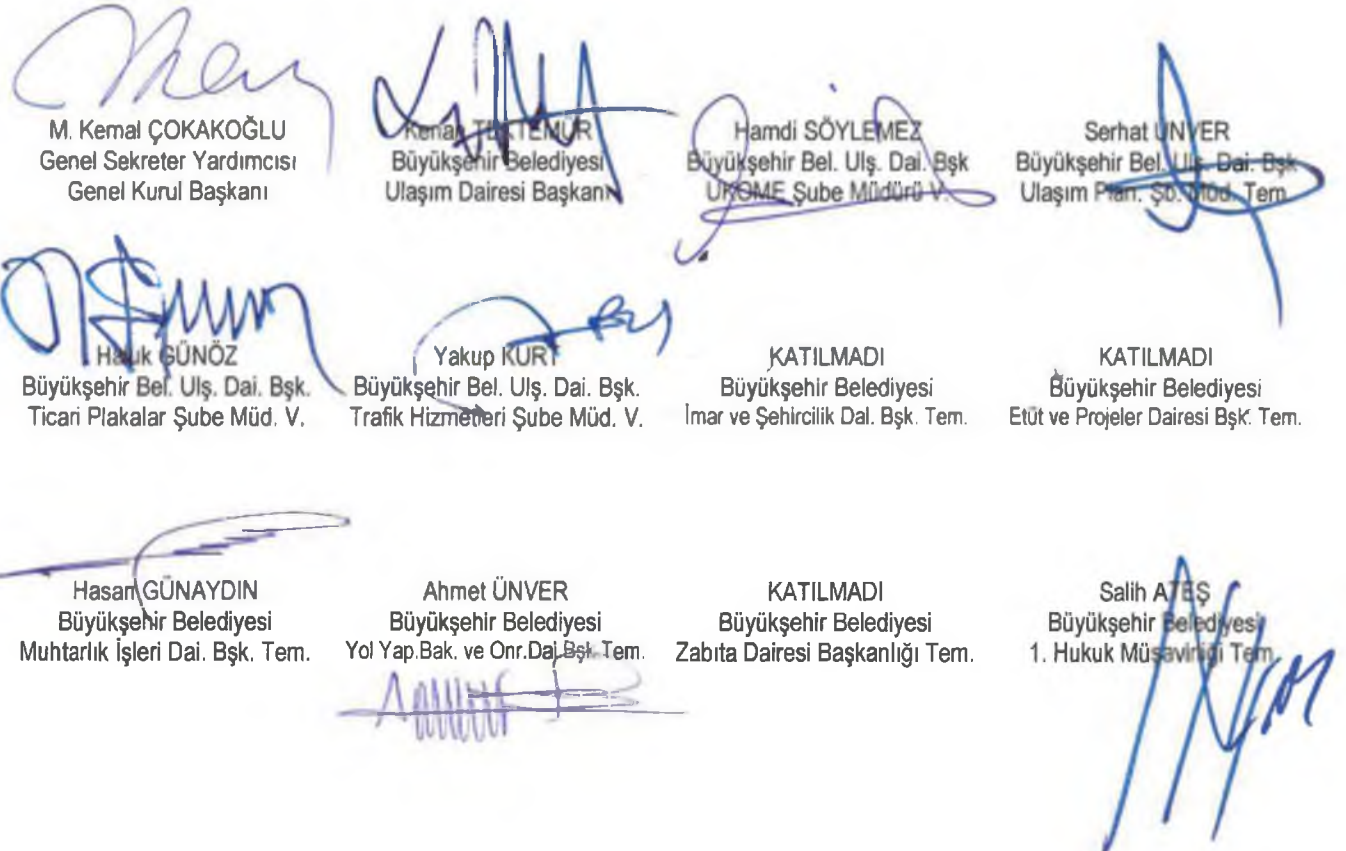 M. Kemal ÇOKAKOĞLU
Genel Sekreter Yardımcısı
Genel Kurul Başkanı
Kenan
Büyükşehir Belediyesi
Ulaşım Dairesi Başkanı
Hamdi SÖYLEMEZ
Büyükşehir Bel. Ulş. Dai. Bşk
UKOME Şube Müdürü V.
Serhat ÜNVER
Büyükşehir Bel. Ulş. Dai. Bşk
Ulaşım Plan. Şb. Müd. Tem.
Haluk GÜNÖZ
Büyükşehir Bel. Ulş. Dai. Bşk.
Ticari Plakalar Şube Müd. V.
Yakup KURT
Büyükşehir Bel. Ulş. Dai. Bşk.
Trafik Hizmetleri Şube Müd. V.
KATILMADI
Büyükşehir Belediyesi
İmar ve Şehircilik Dal. Bşk. Tem.
KATILMADI
Büyükşehir Belediyesi
Etüt ve Projeler Dairesi Bşk. Tem.
Hasan GÜNAYDIN
Büyükşehir Belediyesi
Muhtarlık İşleri Dai. Bşk. Tem.
Ahmet ÜNVER
Büyükşehir Belediyesi
Yol Yap.Bak. ve Onr.Dai.Bşk.Tem.
KATILMADI
Büyükşehir Belediyesi
Zabıta Dairesi Başkanlığı Tem.
Salih ATEŞ
Büyükşehir Belediyesi
1. Hukuk Müşavirliği Tem.